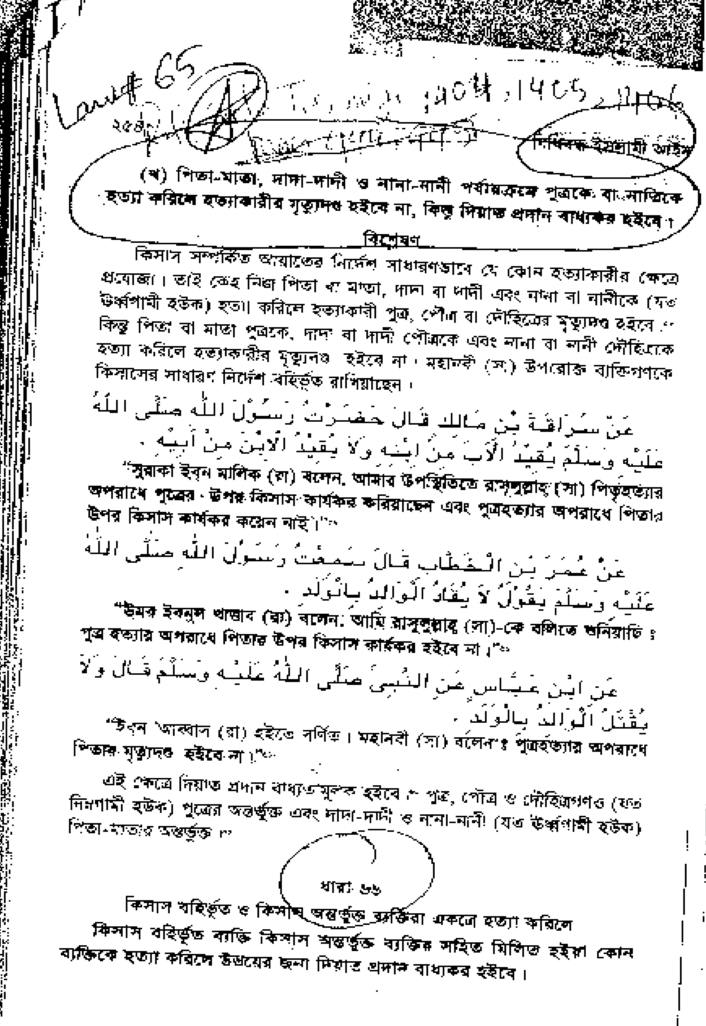 65
1404, 1405, 1406
২৫৪
বিধিবদ্ধ ইসলামী আইন
(খ) পিতা-মাতা, দাদা-দাদী ও নানা-নানী পর্যায়ক্রমে পুত্রকে বা নাতিকে
হত্যা করিলে হত্যাকারীর মৃত্যুদণ্ড হইবে না, কিন্তু দিয়াত প্রদান বাধ্যকর হইবে।
বিশ্লেষণ
কিসাস সম্পর্কিত আয়াতের নির্দেশ সাধারণভাবে যে কোন হত্যাকারীর ক্ষেত্রে
প্রযোজ্য। তাই কেহ নিজ পিতা বা মাতা, দাদা বা দাদী এবং নানা বা নানীকে (যত
ঊর্ধ্বগামী হউক) হত্যা করিলে হত্যাকারী পুত্র, পৌত্র বা দৌহিত্রের মৃত্যুদণ্ড হইবে।
কিন্তু পিতা বা মাতা পুত্রকে, দাদা বা দাদী পৌত্রকে এবং নানা বা নানী দৌহিত্রকে
হত্যা করিলে হত্যাকারীর মৃত্যুদণ্ড হইবে না। মহানবী (সা) উপরোক্ত ব্যক্তিগণকে
কিসাসের সাধারণ নির্দেশ বহির্ভূত রাখিয়াছেন।
عَنْ سُرَاقَةَ بْنِ مَالِك قَالَ حَضَرْتُ رَسُوْلَ اللّٰه صَلَّى اللّٰهُ
عَلَيْه وَسَلَّمَ يُقِيْدُ الْاَبَ مِنْ اِبْنِه وَلاَ يُقِيْدُ الْاِبْنَ مِنْ اَبِيْه .
"সুরাকা ইবন মালিক (রা) বলেন, আমার উপস্থিতিতে রাসূলুল্লাহ (সা) পিতৃহত্যার
অপরাধে পুত্রের উপর কিসাস কার্যকর করিয়াছেন এবং পুত্রহত্যার অপরাধে পিতার
উপর কিসাস কার্যকর করেন নাই।"
عَنْ عُمَرَ بْنِ الْخَطَّابِ قَالَ سَمِعْتُ رَسُوْلَ اللّٰه صَلَّى اللّٰهُ
عَلَيْه وَسَلَّمَ يَقُوْلُ لاَ يُقَادُ الْوَالِدُ بِالْوَلَدِ .
"উমর ইবনুল খাত্তাব (রা) বলেন, আমি রাসূলুল্লাহ (সা)-কে বলিতে শুনিয়াছি :
পুত্র হত্যার অপরাধে পিতার উপর কিসাস কার্যকর হইবে না।"
عَنِ ابْنِ عَبَّاس عَنِ النَّبِىِّ صَلَّى اللّٰهُ عَلَيْه وَسَلَّمَ قَالَ وَلاَ
يُقْتَلُ الْوَالِدُ بِالْوَلَدِ .
"ইবন আব্বাস (রা) হইতে বর্ণিত। মহানবী (সা) বলেন : পুত্রহত্যার অপরাধে
পিতার মৃত্যুদণ্ড হইবে না।"
এই ক্ষেত্রে দিয়াত প্রদান বাধ্যতামূলক হইবে। পুত্র, পৌত্র ও দৌহিত্রগণও (যত
নিম্নগামী হউক) পুত্রের অন্তর্ভুক্ত এবং দাদা-দাদী ও নানা-নানী (যত ঊর্ধ্বগামী হউক)
পিতা-মাতার অন্তর্ভুক্ত।
ধারা ৬৬
কিসাস বহির্ভূত ও কিসাস অন্তর্ভুক্ত ব্যক্তিরা একত্রে হত্যা করিলে
কিসাস বহির্ভূত ব্যক্তি কিসাস অন্তর্ভুক্ত ব্যক্তির সহিত মিলিত হইয়া কোন
ব্যক্তিকে হত্যা করিলে উভয়ের জন্য দিয়াত প্রদান বাধ্যকর হইবে।